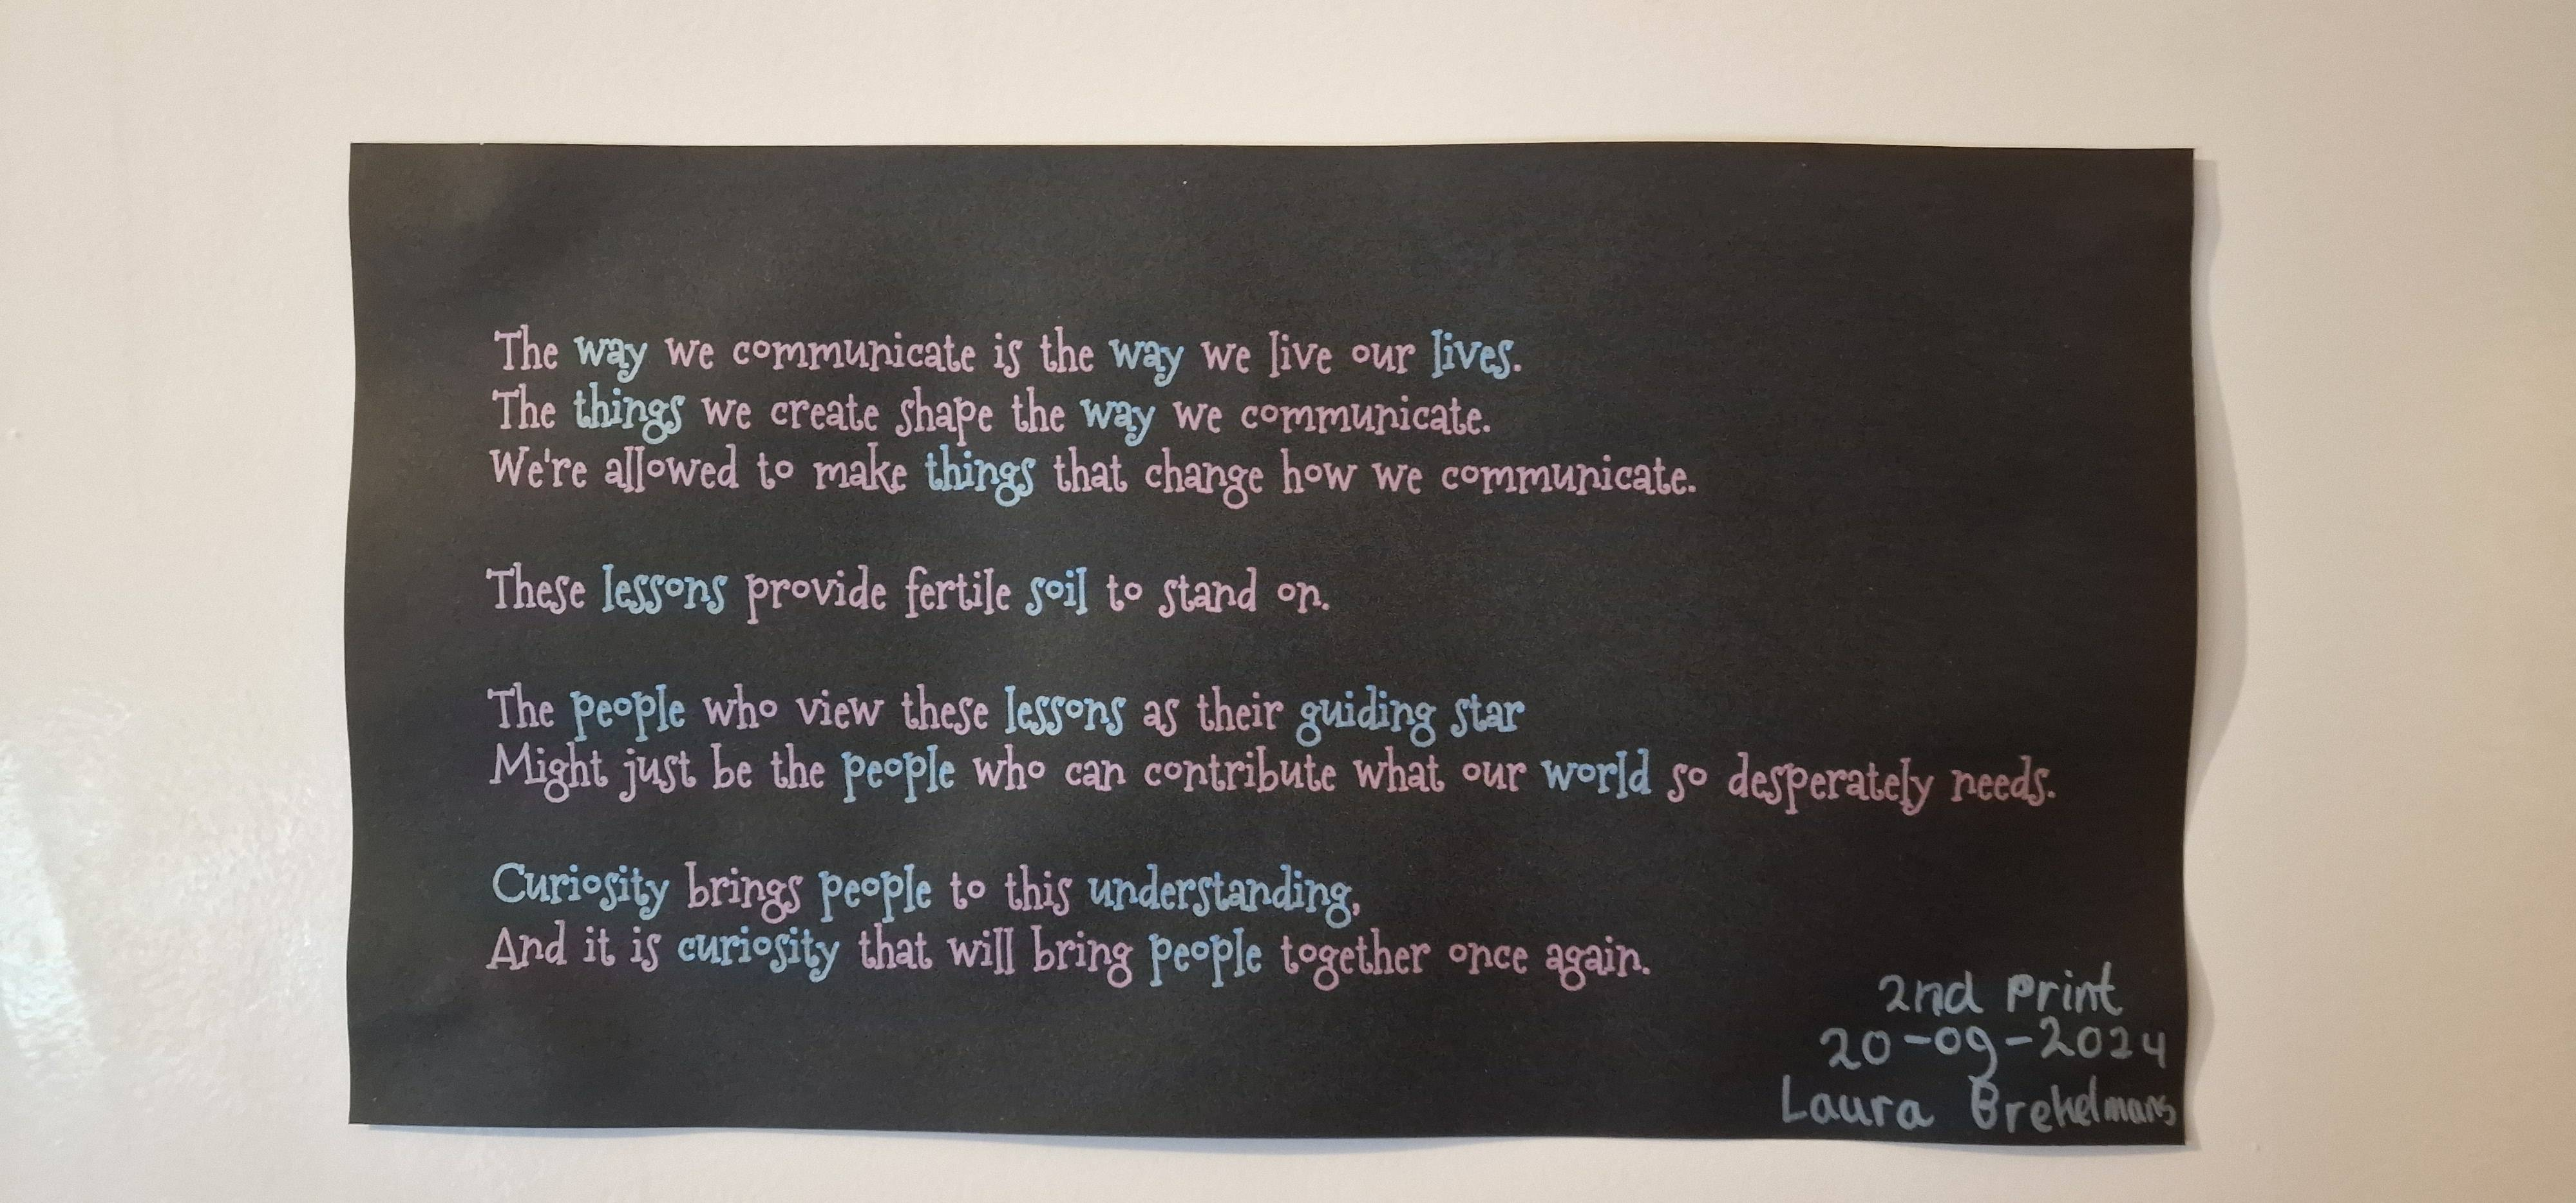 The way we communicate is the way we live our lives.
The things we create shape the way we communicate.
We're allowed to make things that change how we communicate.
These lessons provide fertile soil to stand on.
The people who view these lessons as their guiding star
Might just be the people who can contribute what our world so desperately needs.
Curiosity brings people to this understanding,
And it is curiosity that will bring people together once again.
2nd print
20-09-2024
Laura Brekelmans